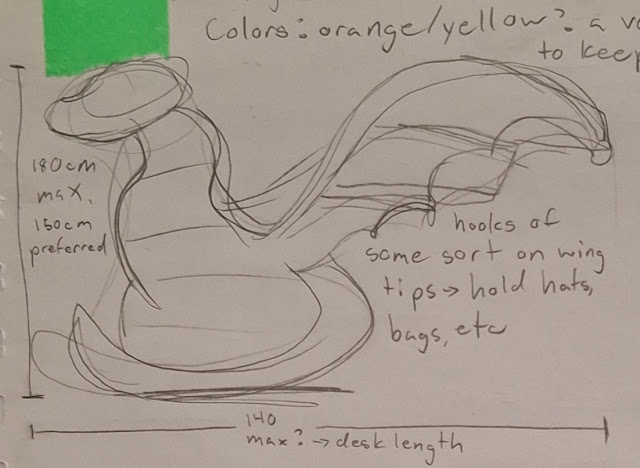 Colors: orange/yellow? a
to keep
180cm
max,
150cm
preferred
hooks of
some sort on wing
tips → hold hats,
bags, etc
140
max? → desk length